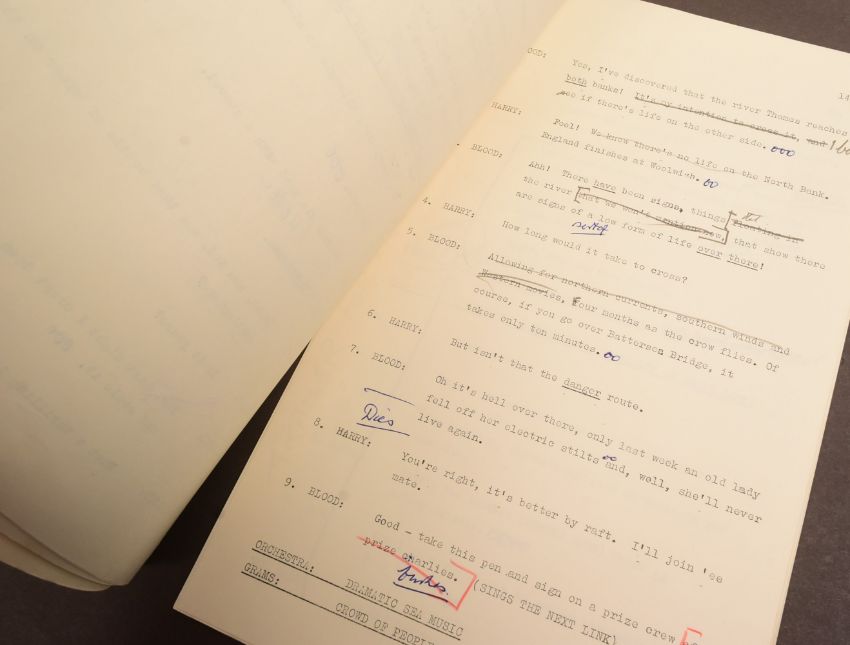 14
OOD: Yes, I've discovered that the river Thames reaches
both banks! It's my intention to cross it, and
see if there's life on the other side. ooo
HARRY: Fool! We know there's no life on the North Bank.
England finishes at Woolwich. oo
BLOOD: Ahh! There have been signs, things floating in stet
the river that we won't mention now, that show there
are signs of a low form of life over there!
sort of
4. HARRY: How long would it take to cross?
5. BLOOD: Allowing for northern currents, southern winds and
Western movies, Four months as the crow flies. Of
course, if you go over Battersea Bridge, it
takes only ten minutes. oo
6. HARRY: But isn't that the danger route.
7. BLOOD: Oh it's hell over there, only last week an old lady
fell off her electric stilts and, well, she'll never
live again. oo
Dies
8. HARRY: You're right, it's better by raft. I'll join 'ee
mate.
9. BLOOD: Good - take this pen and sign on a prize crew of
prize charlies. (SINGS THE NEXT LINK)
ORCHESTRA: DRAMATIC SEA MUSIC
GRAMS: CROWD OF PEOPL